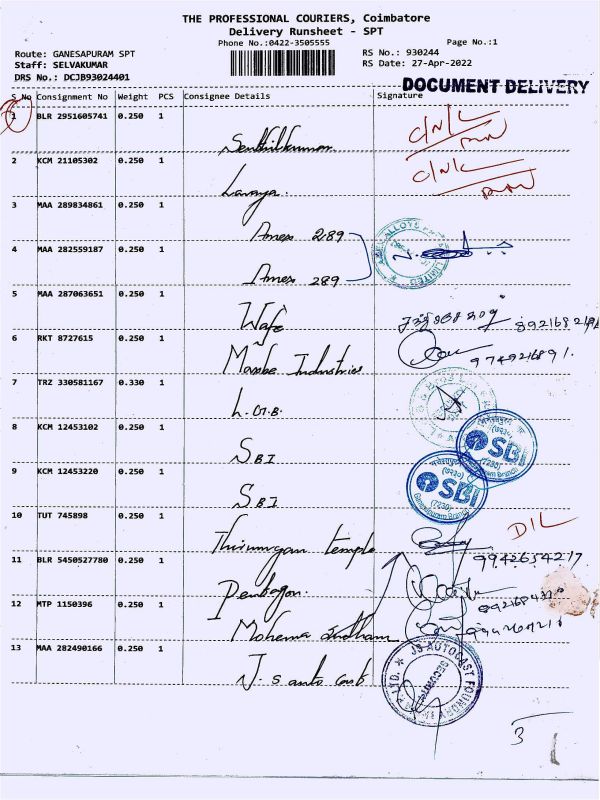 THE PROFESSIONAL COURIERS, Coimbatore
Delivery Runsheet - SPT
Phone No.:0422-3505555
Page No.:1
Route: GANESAPURAM SPT
RS No.: 930244
Staff: SELVAKUMAR
RS Date: 27-Apr-2022
DRS No.: DCJB93024401
DOCUMENT DELIVERY
S No Consignment No Weight PCS Consignee Details Signature
1 BLR 2951605741 0.250 1 Senthilkumar
2 KCM 21105302 0.250 1 Lavaya.
3 MAA 289834861 0.250 1 Amex 289
4 MAA 282559187 0.250 1 Amex 289
5 MAA 287063651 0.250 1 Wafe
6 RKT 8727615 0.250 1 Industries 9749216891.
7 TRZ 330581167 0.330 1
8 KCM 12453102 0.250 1 SBI
SBI (7230)
9 KCM 12453220 0.250 1 SBI
SBI (7230) Ganesapuram Branch
10 TUT 745898 0.250 1 Thirumugan temple D/L 9942654217
11 BLR 5450527780 0.250 1 Pentagon.
12 MTP 1150396 0.250 1 Mohema
13 MAA 282490166 0.250 1 J.S auto cast
JS AUTOCAST FOUNDRY SECURITY LTD.
3